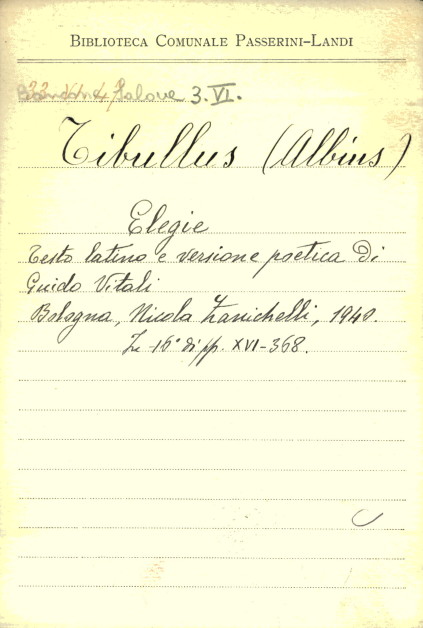 BIBLIOTECA COMUNALE PASSERINI-LANDI
Salone 3.VI.
Tibullus (Albius)
Elegie
Testo latino e versione poetica di
Guido Vitali
Bologna, Nicola Zanichelli, 1940.
In-16° di pp. XVI-368.